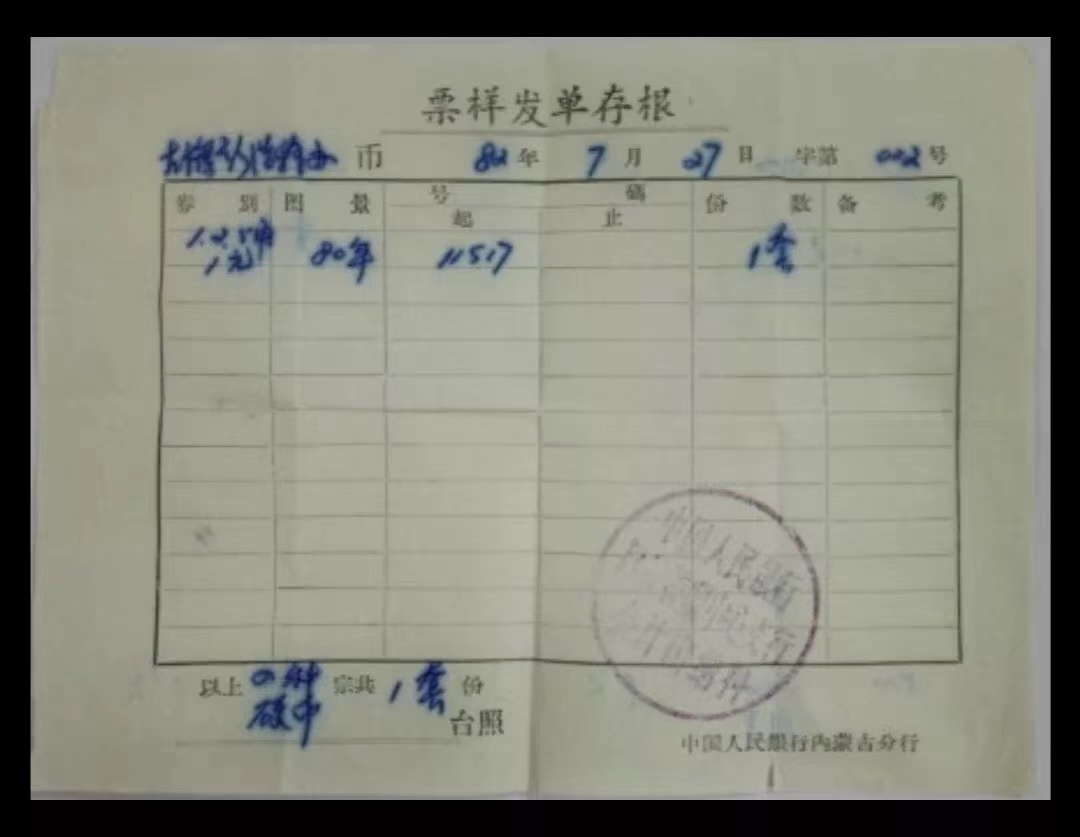 票样发单存根
币 82年 7月 27日 字第 002号
券别 图景 号码 份数 备考
起 止
1.2.5角
1元 80年 11517 1套
中国人民银行
以上 四种 宗共 1套 份
硬币
台照
中国人民银行内蒙古分行